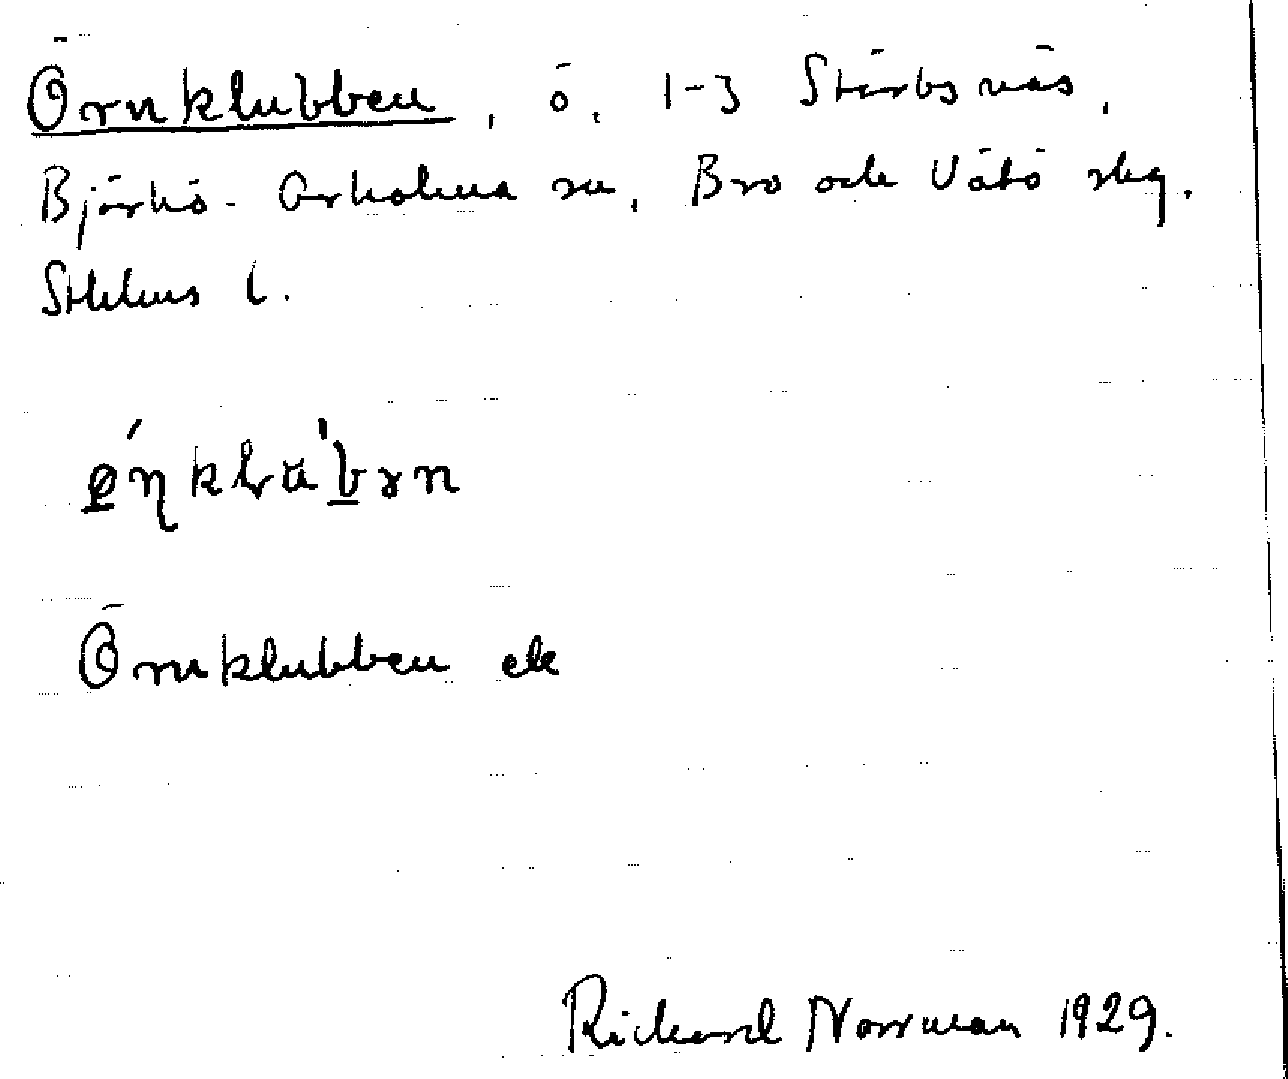 Örnklubben, ö, 1-3 Stärbsnäs,
Björkö-Arholma sn, Bro och Vätö skg,
Sthlms l.
ǿɳklu̇bən
Örnklubben ek
Rickard Norrman 1929.